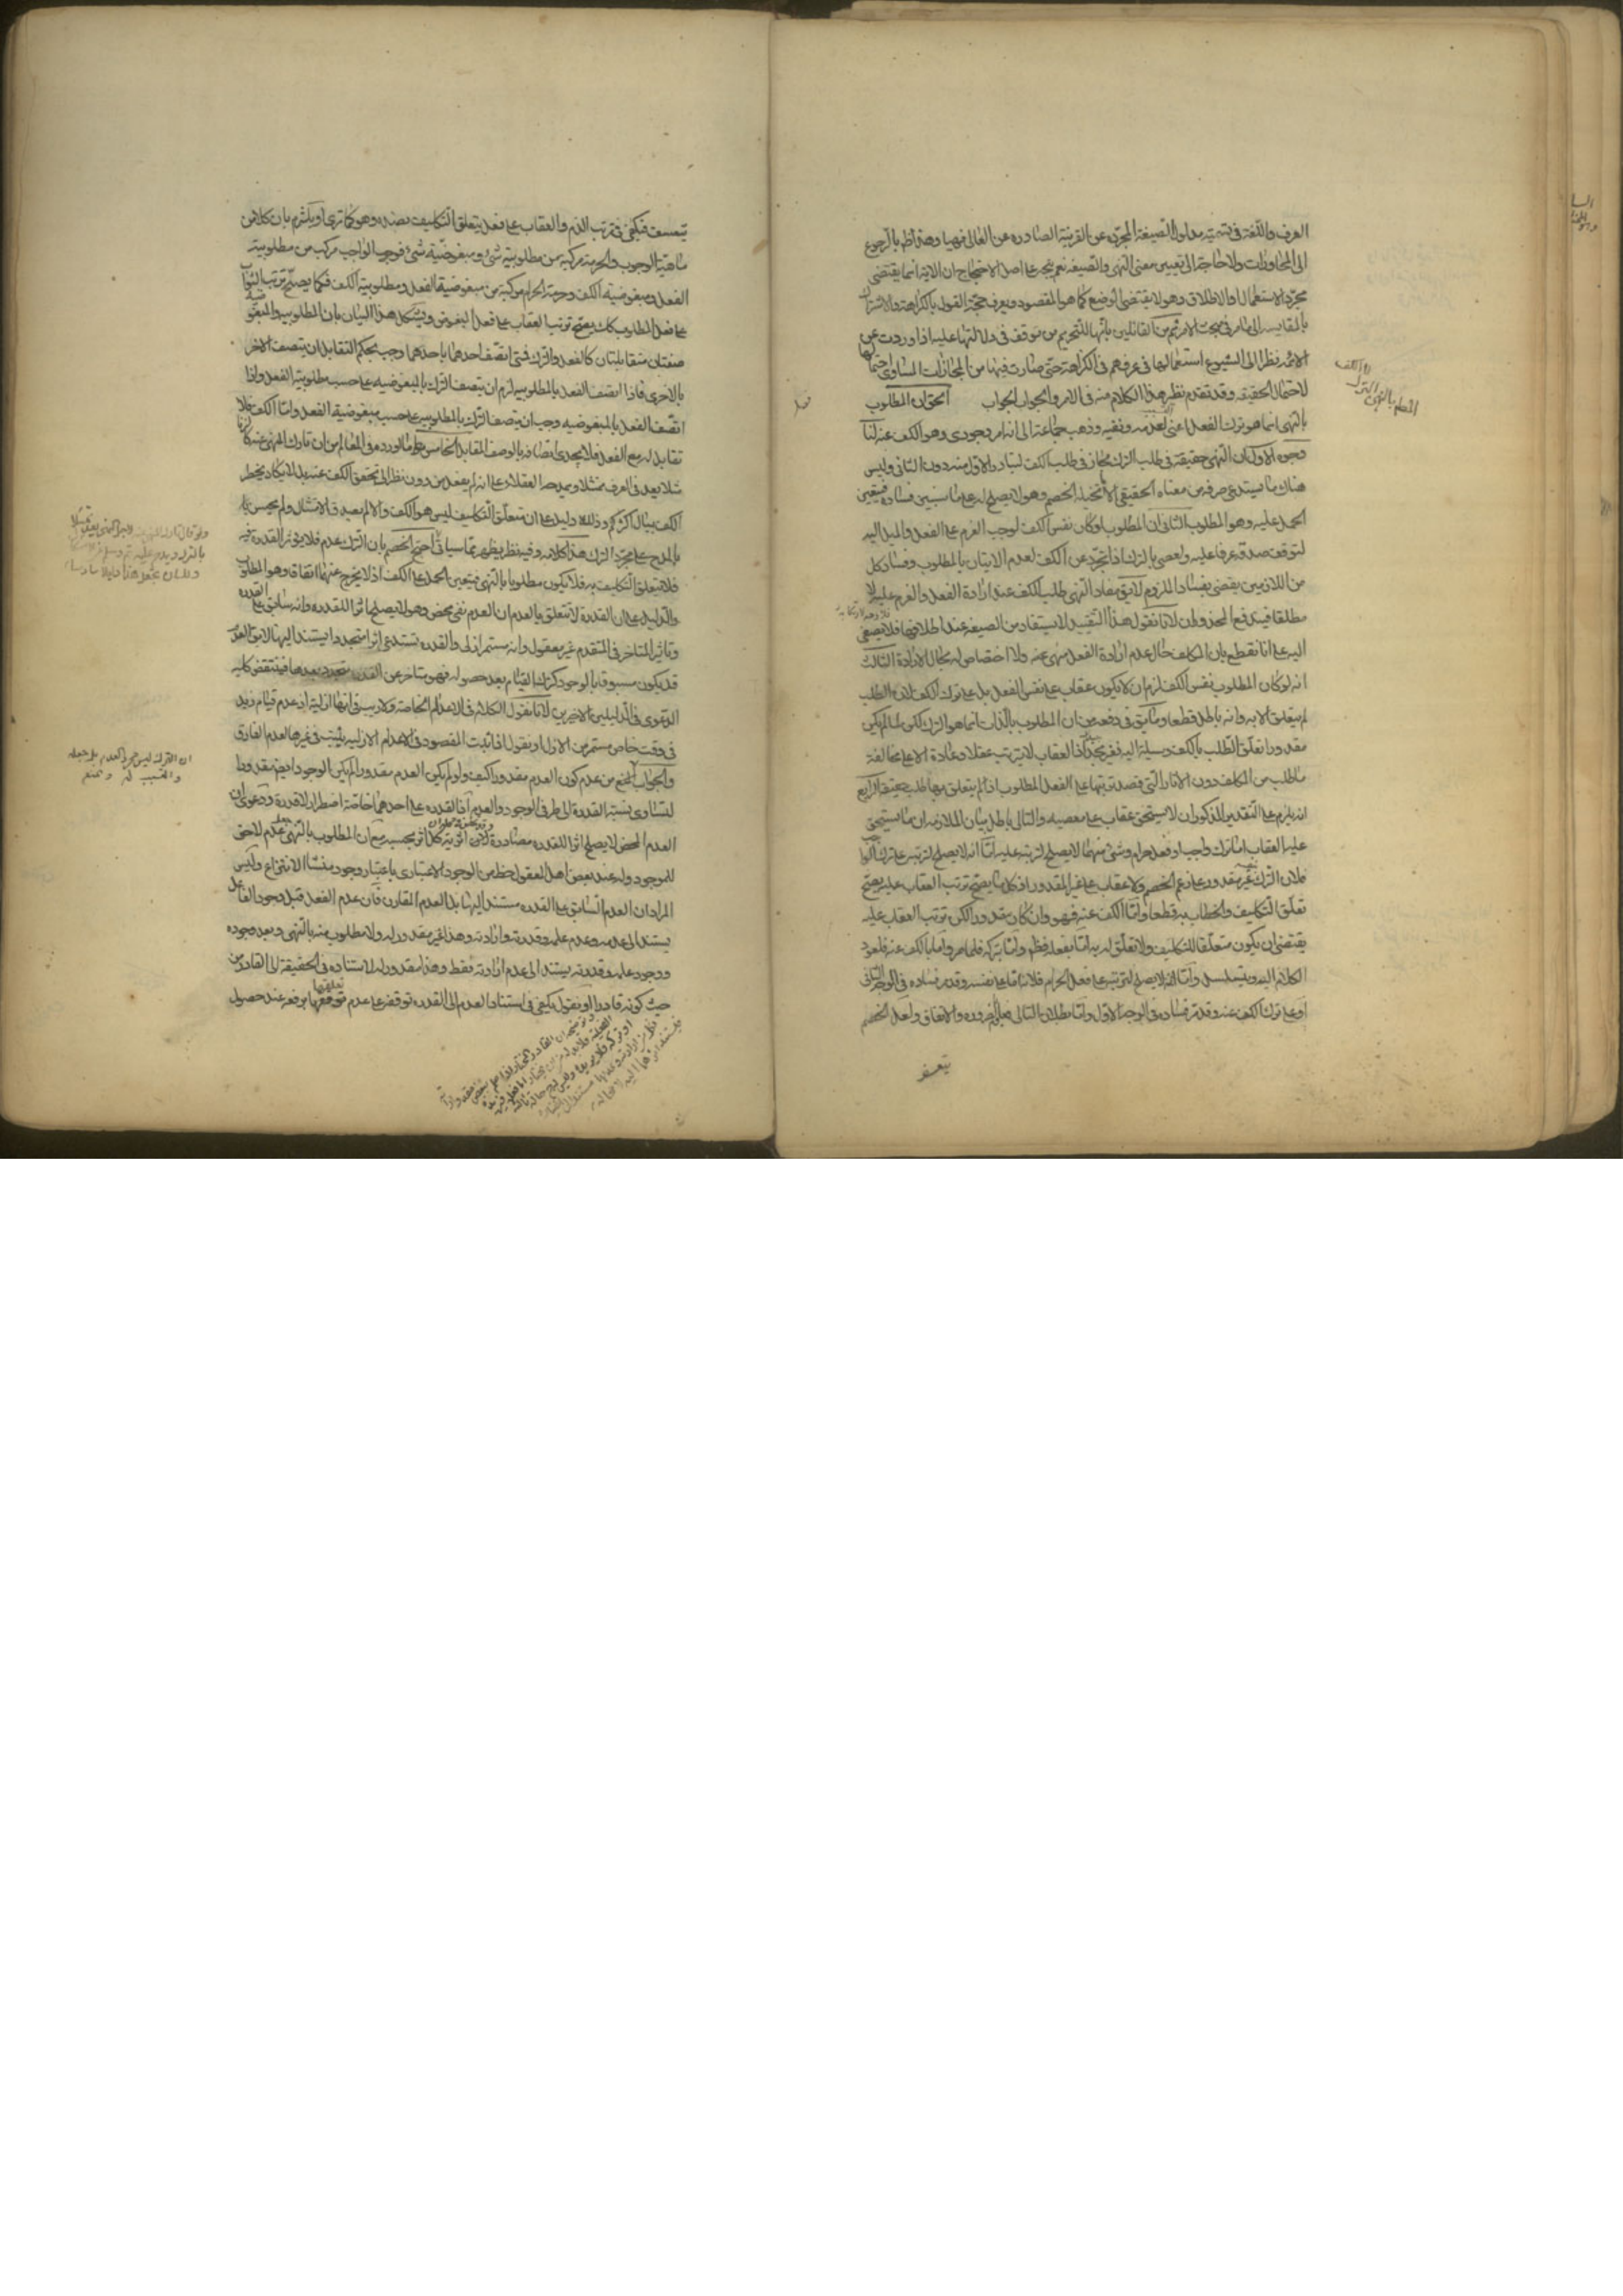 العرف واللغة في تسميته مدلول الصيغة المجردة عن القرينة الصادرة عن العالي نهيا وهذا ظهر بالرجوع
الى المحاورات ولا حاجة الى تعيين معنى النهي والصيغة نعم يتجه على اصل الاحتجاج ان الاية انما يقتضي
مجرد الاستعمال او الاطلاق وهو لا يقتضي الوضع كما هو المقصود ويعرف حجة القول بالكراهة والاشتراك
بالمقايسة الى ما مر في مبحث الامر ثم من القائلين بانها للتحريم من توقف في دلالتها عليه اذا وردت عن
الائمة نظرا الى شيوع استعمالها في عرفهم في الكراهة حتى صارت فيها من المجازات المساوي احتمالها
لاحتمال الحقيقة وقد تقدم نظير هذا الكلام منه في الامر والجواب الجواب الحق ان المطلوب
بالنهي انما هو ترك الفعل اعني لعدمه ونفيه وذهب جماعة الى انه امر وجودي وهو الكف عنه لنا
وجوه الاول ان النهي حقيقة في طلب الترك مجاز في طلب الكف لتبادر الاول منه دون الثاني وليس
هناك ما يستدعي صرفه عن معناه الحقيقي الا ما تخيله الخصم وهو لا يصلح له على ما سنبين فساده فيتعين
الحمل عليه وهو المطلوب الثاني ان المطلوب لو كان نفس الكف لوجب العزم على الفعل والميل اليه
لتوقف صدقه عرفا عليه ولعصى بالترك اذا تجرد عن الكف لعدم الاتيان بالمطلوب وفساد كل
من اللازمين يقضي بفساد الملزوم لا يق مفاد النهي طلب الكف عند ارادة الفعل والعزم عليه لا
مطلقا فيندفع المحذوران لانا نقول هذا التقييد لا يستفاد من الصيغة عند اطلاقها فلا يصغى
اليه على انا نقطع بان المكلف حال عدم ارادة الفعل منهي عنه ولا اختصاص له بحال الارادة الثالث
انه لو كان المطلوب نفس الكف لزم ان لا يكون عقاب على نفس الفعل بل على ترك الكف لان الطلب
لم يتعلق الا به وانه باطل قطعا وما يق في دفعه من ان المطلوب بالذات انما هو الترك لكن لما لم يكن
مقدورا تعلق الطلب بالكف وسيلة اليه فغير مجد اذ العقاب لا يترتب عقلا وعادة الا على مخالفة
ما طلب من المكلف دون الاثار التي قصد ترتبها على الفعل المطلوب اذا لم يتعلق بها طلب حقيقة الرابع
انه يلزم على التقدير المذكور ان لا يستحق عقاب على معصية والتالي باطل بيان الملازمة ان ما يستحق
عليه العقاب اما ترك واجب او فعل حرام وشئ منهما لا يصلح لترتبه عليه اما انه لا يصلح لترتبه على ترك الواجب
فلان الترك غير مقدور على زعم الخصم ولا عقاب على غير المقدور اذ كل ما يصح ترتب العقاب عليه يصح
تعلق التكليف والخطاب به قطعا واما الكف عنه فهو وان كان مقدورا لكن ترتب العقاب عليه
يقتضي ان يكون متعلقا للتكليف ولا تعلق له به اما بفعله فظهر واما بتركه فلما مر واما بالكف عنه فلعود
الكلام اليه ويتسلسل واما انه لا يصلح لترتبه على فعل الحرام فلانه اما على نفسه وقد مر فساده في الوجه الثاني
او على ترك الكف عنه وقد مر فساده في الوجه الاول واما بطلان التالي فبالضرورة والاتفاق ولعل الخصم
يتعسف
يتعسف فيكفي في ترتب الذم والعقاب على فعل يتعلق التكليف بضده وهو كما ترى او يلتزم بان كلا من
ماهية الوجوب والحرمة مركبة من مطلوبية شئ ومبغوضية شئ فوجوب الواجب مركب من مطلوبية
الفعل ومبغوضية الكف وحرمة الحرام مركبة من مبغوضية الفعل ومطلوبية الكف فكما يصح ترتب الثواب
على فعل المطلوب كذلك يصح ترتب العقاب على فعل المبغوض ويشكل هذا البيان بان المطلوبية والمبغوضية
صفتان متقابلتان كالفعل والترك فمتى اتصف احدهما باحدهما وجب بحكم التقابل ان يتصف الاخر
بالاخرى فاذا اتصف الفعل بالمطلوبية لزم ان يتصف الترك بالمبغوضية على حسب مطلوبية الفعل واذا
اتصف الفعل بالمبغوضية وجب ان يتصف الترك بالمطلوبية على حسب مبغوضية الفعل واما الكف فلا
تقابل له مع الفعل فلا يجدي اتصافه بالوصف المقابل الخامس ما اورده في المعالم من ان تارك المنهي عنه كالزنا
مثلا يعد في العرف ممتثلا ويمدحه العقلاء على انه لم يفعل من دون نظر الى تحقق الكف عنه بل لا يكاد يخطر
الكف ببال اكثرهم وذلك دليل على ان متعلق التكليف ليس هو الكف والا لم يصدق الامتثال ولم يحسن
المدح على مجرد الترك هذا كلامه وفيه نظر يظهر مما سياتي احتج الخصم بان الترك عدم فلا يؤثر القدرة فيه
فلا يتعلق التكليف به فلا يكون مطلوبا بالنهي فيتعين الحمل على الكف اذ لا يخرج عنهما اتفاقا وهو المطلوب
والدليل على ان القدرة لا تتعلق بالعدم ان العدم نفي محض وهو لا يصلح اثرا للقدرة وانه سابق على القدرة
وتاثير المتاخر في المتقدم غير معقول وانه مستمر ازلي والقدرة تستدعي اثرا متجددا يستند اليها لا يق العدم
قد يكون مسبوقا بالوجود كترك القيام بعد حصوله فهو متاخر عن القدرة متجدد بعدها فينتقض كلية
الدعوى في الدليلين الاخيرين لانا نقول الكلام في الاعدام الخاصة ولا ريب في انها ازلية اذ عدم قيام زيد
في وقت خاص مستمر من الازل او نقول اذا ثبت المقصود في الاعدام الازلية يثبت في غيرها لعدم الفارق
والجواب المنع من عدم كون العدم مقدورا كيف ولو لم يكن العدم مقدورا لم يكن الوجود ايضا مقدورا
لتساوي نسبة القدرة الى طرفي الوجود والعدم اذ القدرة على احدهما خاصة اضطرار لا قدرة ودعوى ان
العدم المحض لا يصلح اثرا للقدرة مصادرة لان اثرية كل اثر بحسبه مع ان المطلوب بالنهي عدم لاحق
للموجود وله عند بعض اهل المعقول حظ من الوجود الاعتباري باعتبار وجود منشأ الانتزاع وليس
المراد ان العدم السابق على القدرة مستند اليها بل العدم المقارن فان عدم الفعل قبل وجود الفاعل
يستند الى عدمه وعدم علمه وقدرته وارادته وهذا غير مقدور له ولا مطلوب منه بالنهي وبعد وجوده
ووجود علمه وقدرته يستند الى عدم ارادته فقط وهذا مقدور له لاستناده في الحقيقة الى القادر من
حيث كونه قادرا او نقول يكفي في استناد العدم الى القدرة توقفه على عدم تعلقها برفعه عند حصول
ان الترك ليس مجرد العدم بل جعله